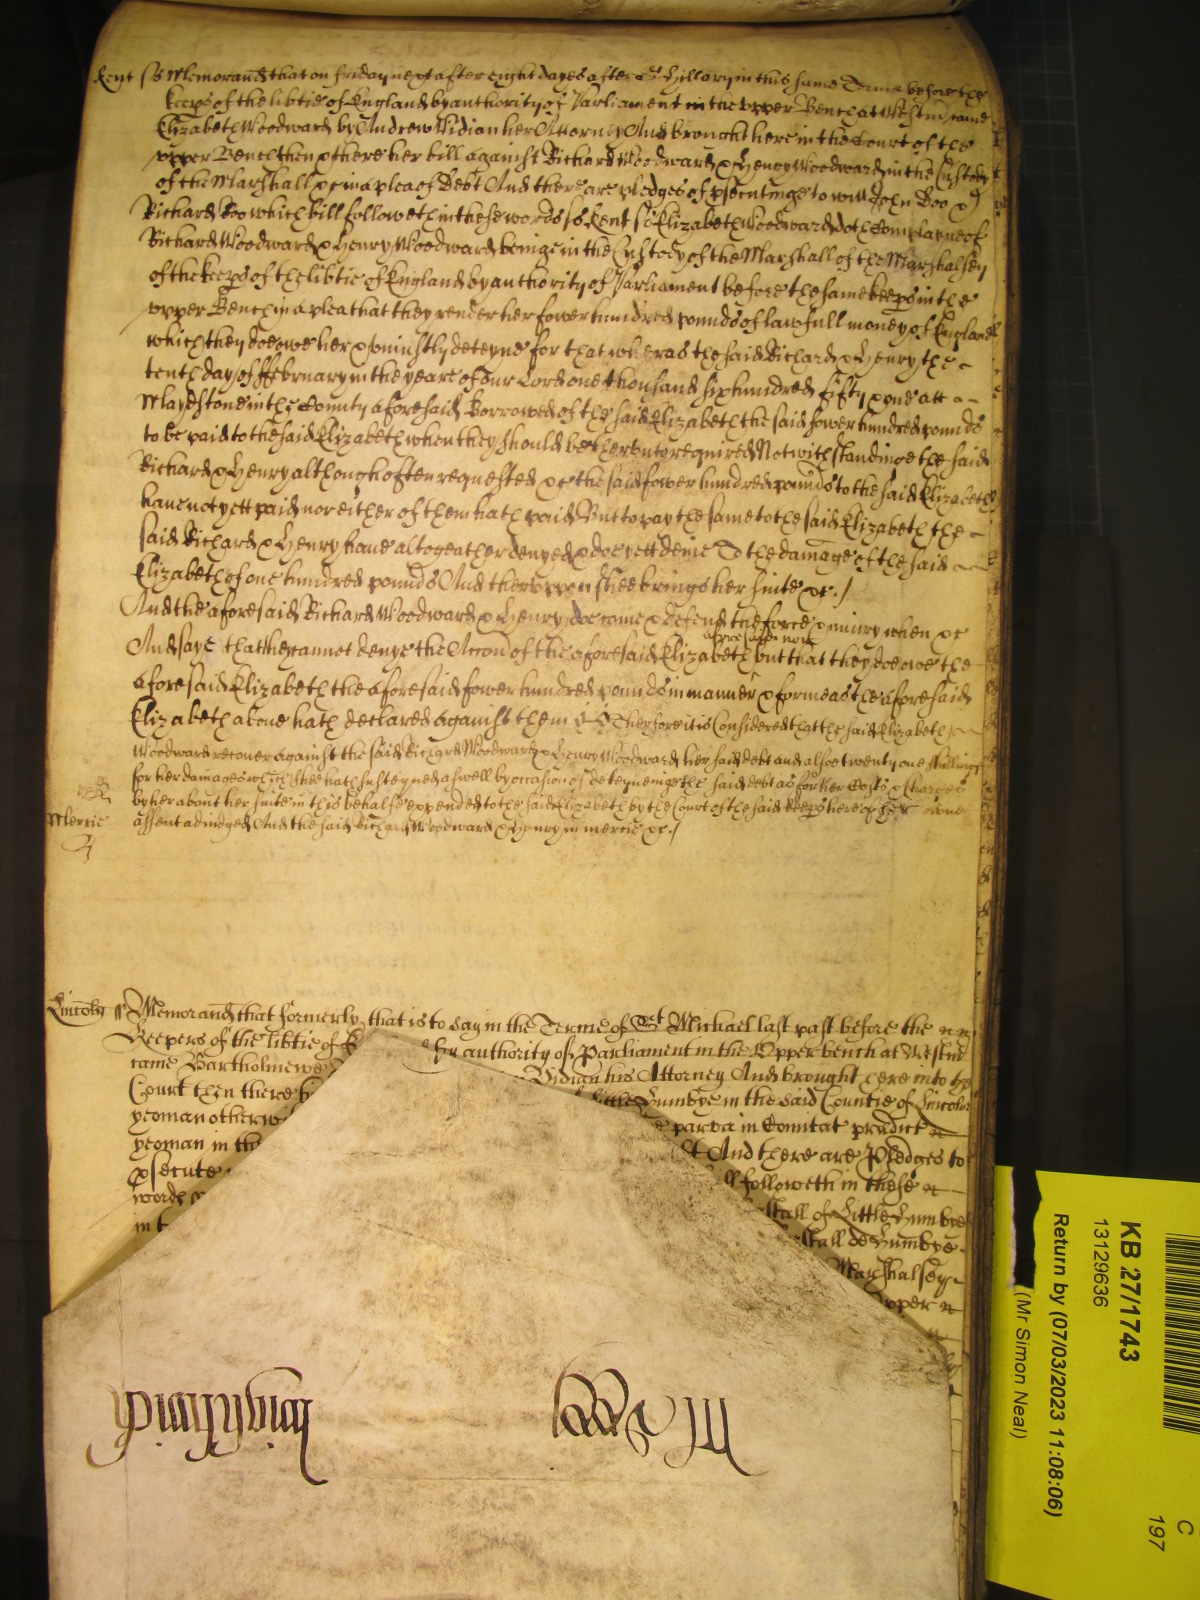 Kent ss Memorand that on Friday next after eight dayes after St Hillary in this same Terme before the
keeps of the libtie of England by authority of Parliament in the upper Bench att Westm came
Elizabeth Woodward by Andrew Vidian her Attorney And brought here in the Court of the
upper Bench then & there her bill against Richard Woodward & Henry Woodward in the Custody
of the Marshall &c in a plea of Debt And there are pledges of psecutinge to witt John Doo &
Richard Roo which bill followeth in these words ss Kent ss Elizabeth Woodward doth Complayne of
Richard Woodward & Henry Woodward beinge in the Custody of the Marshall of the Marshalsey
of the keeps of the libtie of England by authority of Parliament before the same keeps in the
upper Bench in a plea that they render her fower hundred pounds of lawfull money of England
which they doe owe her & uniustly deteyne for that wheras the said Richard & Henry the
tenth day of ffebruary in the yeare of our Lord one thousand six hundred fifty & one att a
Maydstone in the County aforesaid Borrowed of the said Elizabeth the said fower hundred pounds
to be paid to the said Elizabeth when they should be therunto required Notwithstandinge the said
Richard & Henry although often requested &c the said fower hundred pounds to the said Elizabeth
have not yett paid nor either of them hath paid But to pay the same to the said Elizabeth the
said Richard & Henry have altogeather denyed & doe yett denie To the damage of the said
Elizabeth of one hundred pounds And therupon shee brings her suite &c./
And the aforesaid Richard Woodward & Henry doe come & defend the force & iniury when &c
And saye that the cannot denye the Accon of the aforesaid Elizabeth aforesaid nor but that they doe owe the
aforesaid Elizabeth the aforesaid fower hundred pounds in manner & forme as the aforesaid
Elizabeth above hath declared against them Therfore it is Considered that the said Elizabeth
Woodward recover against the said Richard Woodward & Henry Woodward her said debt and alsoe twenty one shillings
for her damages which shee hath susteyned aswell by occasion of deteyneinge the said debt as for her Costs & Charges
by her about her suite in this behalfe expended to the said Elizabeth by the Court of the said keeps here of her owne
Mercie assent adiudged And the said Richard Woodward & Henry in mercie &c./
Lincoln ss Memorand that formerly that is to say in the Terme of St Michael last past before the
Keepers of the libtie of by authority of Parliament in the Upper bench at Westm
came Bartholmewe Vidian his Attorney And brought here into the
Court then there Little Humbye in the said Countie of Lincoln
yeoman otherw parva in Comitat predict
yeoman in th And there are Pledges to
psecute followeth in these
words stall of Little Humbye
in stall de Humbye
Marshalsey
upper
KB 27/1743
13129636
Return by (07/03/2023 11:08:06)
(Mr Simon Neal)
C
197